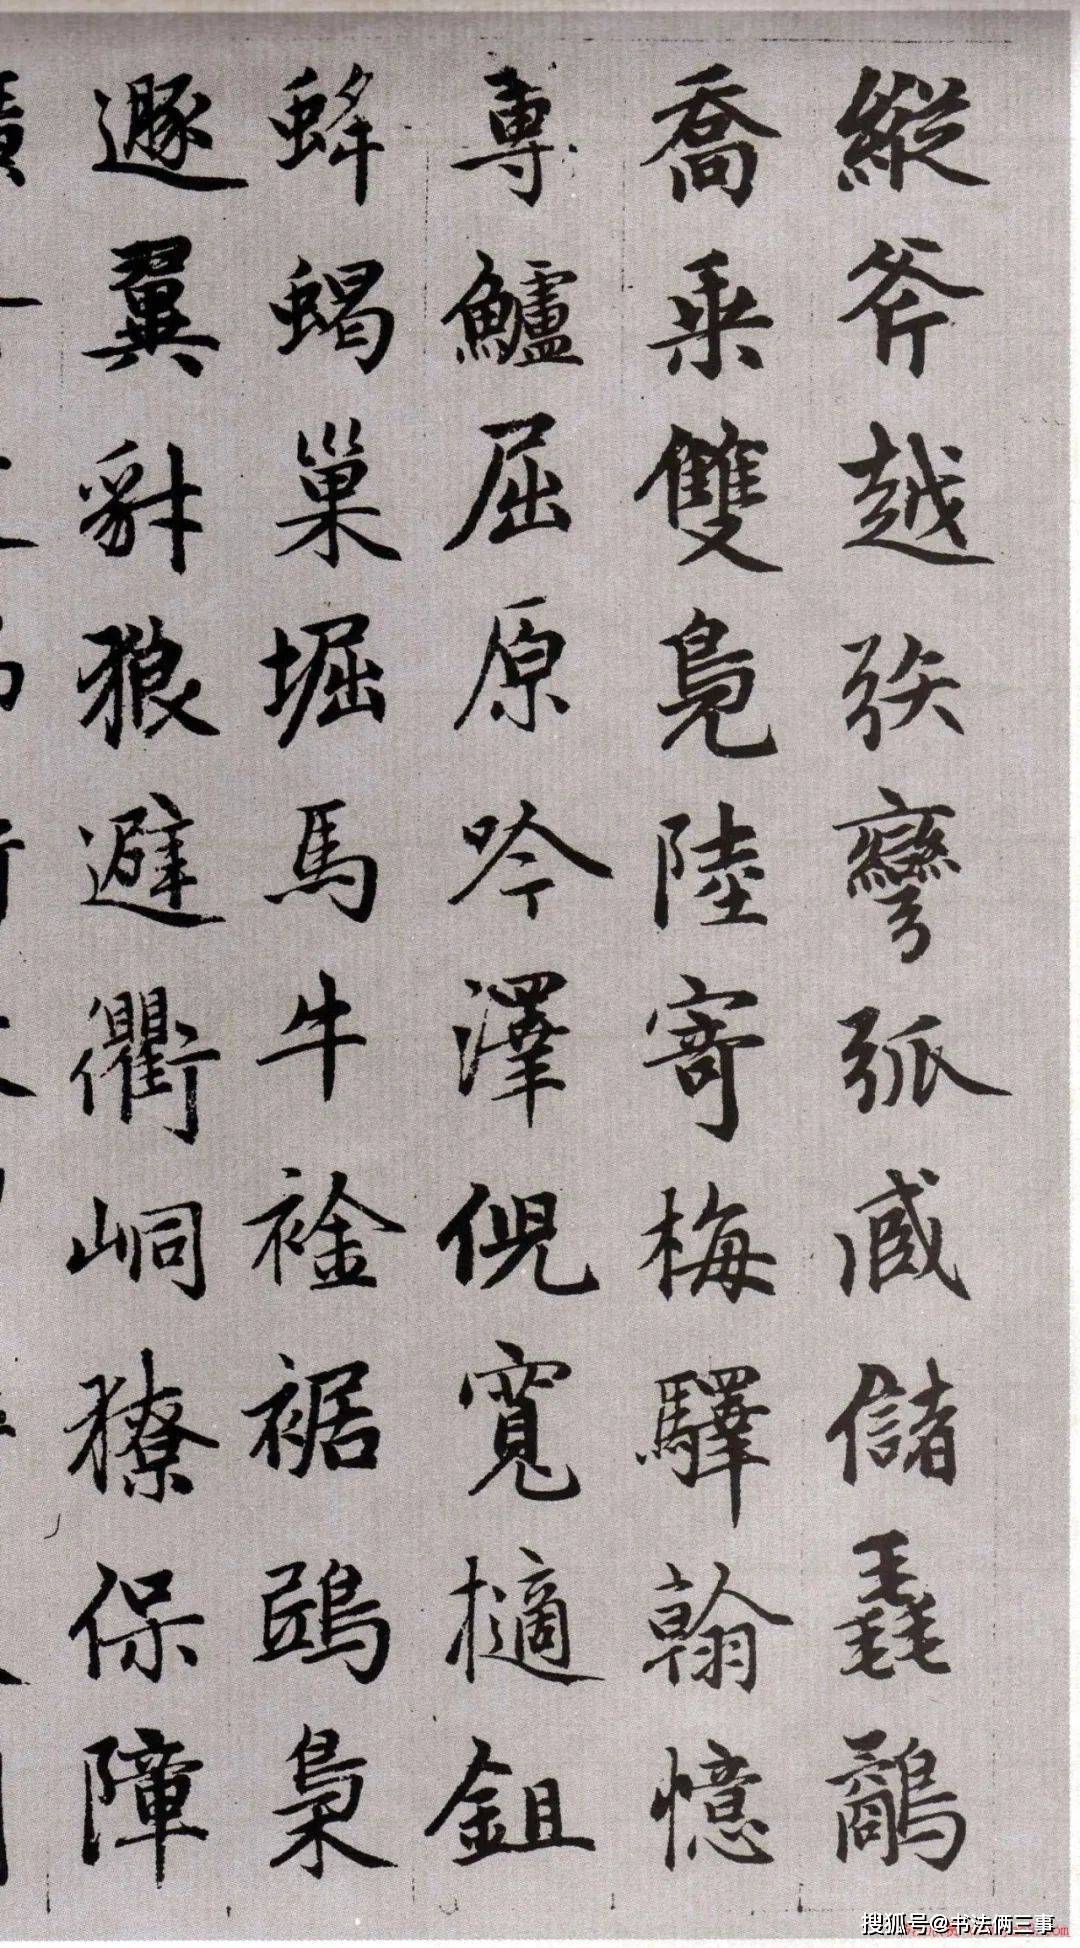 縱斧越弨彎弧臧儲毳鷸
喬乘雙鳧陸寄梅驛翰憶
專鱸屈原吟澤倪寬擿鉏
蜂蝎巢堀馬牛襟裾鴟梟
遯翼豺狼避衢峒獠保障
搜狐号@书法俩三事